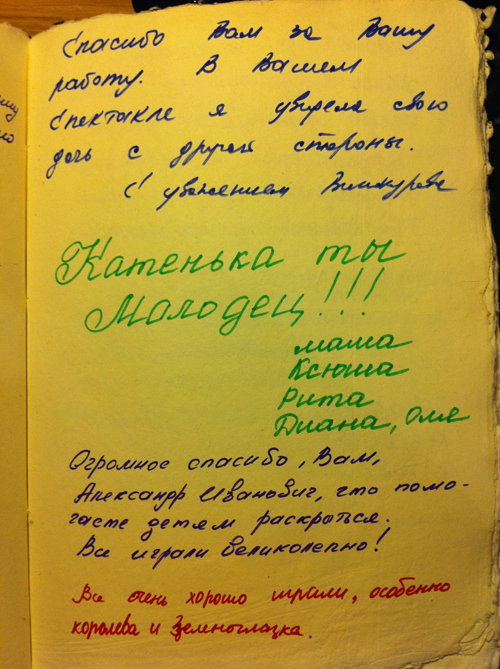 Спасибо Вам за Вашу
работу. В Вашем
спектакле я увидела свою
дочь с другой стороны.
С уважением
Катенька ты
Молодец!!!
мама
Ксюша
Рита
Диана, Оля
Огромное спасибо, Вам,
Александр Иванович, что помо-
гаете детям раскрыться.
Все играли великолепно!
Все очень хорошо играли, особенно
королева и Зеленоглазка.